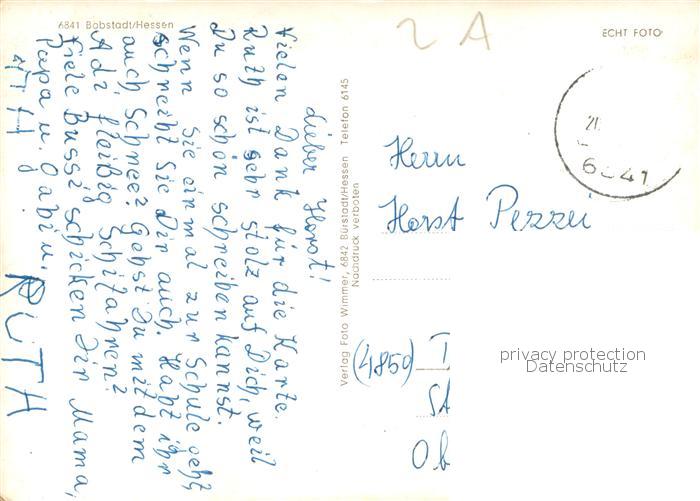 6841 Bobstadt/Hessen
ECHT FOTO
2 A
21
6 41
Lieber Horst!
Vielen Dank für die Karte.
Ruth ist sehr stolz auf Dich, weil
Du so schön schreiben kannst.
Wenn sie einmal zur Schule geht
schreibt sie Dir auch. Habt ihr
auch Schnee? Gehst Du mit dem
Adi fleißig Schifahren?
Viele Bussi schicken Dir Mama,
Papa u. Gabi u.
RUTH
Verlag Foto Wimmer, 6842 Bürstadt/Hessen Telefon 6145
Nachdruck verboten
Herrn
Horst Pezzei
(4850) T
St
Ob
privacy protection
Datenschutz